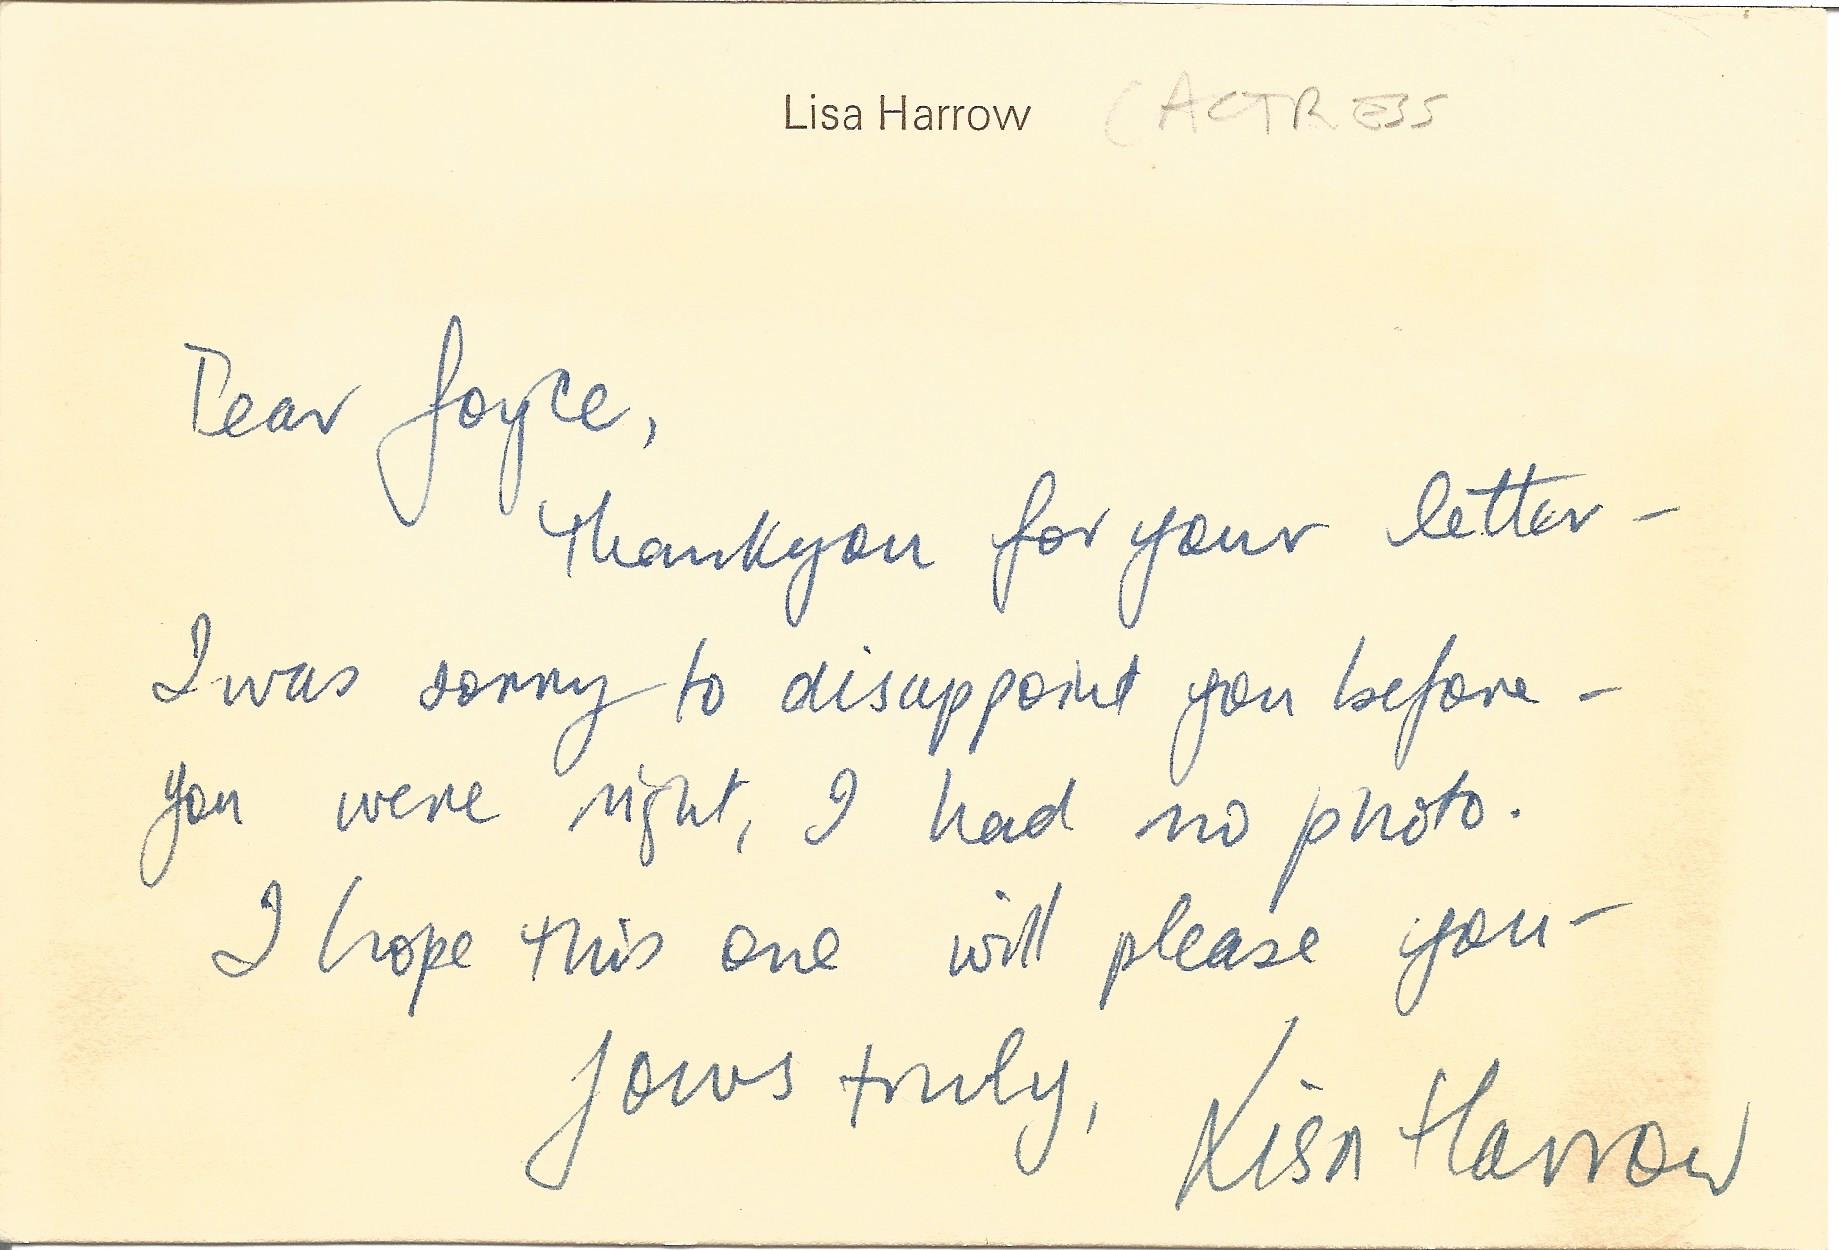 Lisa Harrow (ACTRESS
Dear Joyce,
Thankyou for your letter –
I was sorry to disappoint you before –
you were right, I had no photo.
I hope this one will please you –
Yours truly, Lisa Harrow